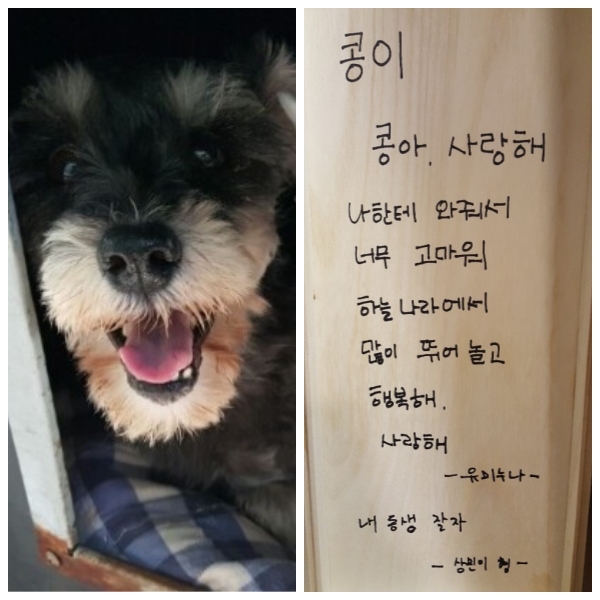 콩이
콩아. 사랑해
나한테 와줘서
너무 고마워
하늘나라에서
많이 뛰어놀고
행복해.
사랑해
- 유미누나 -
내 동생 잘자
- 상민이 형 -